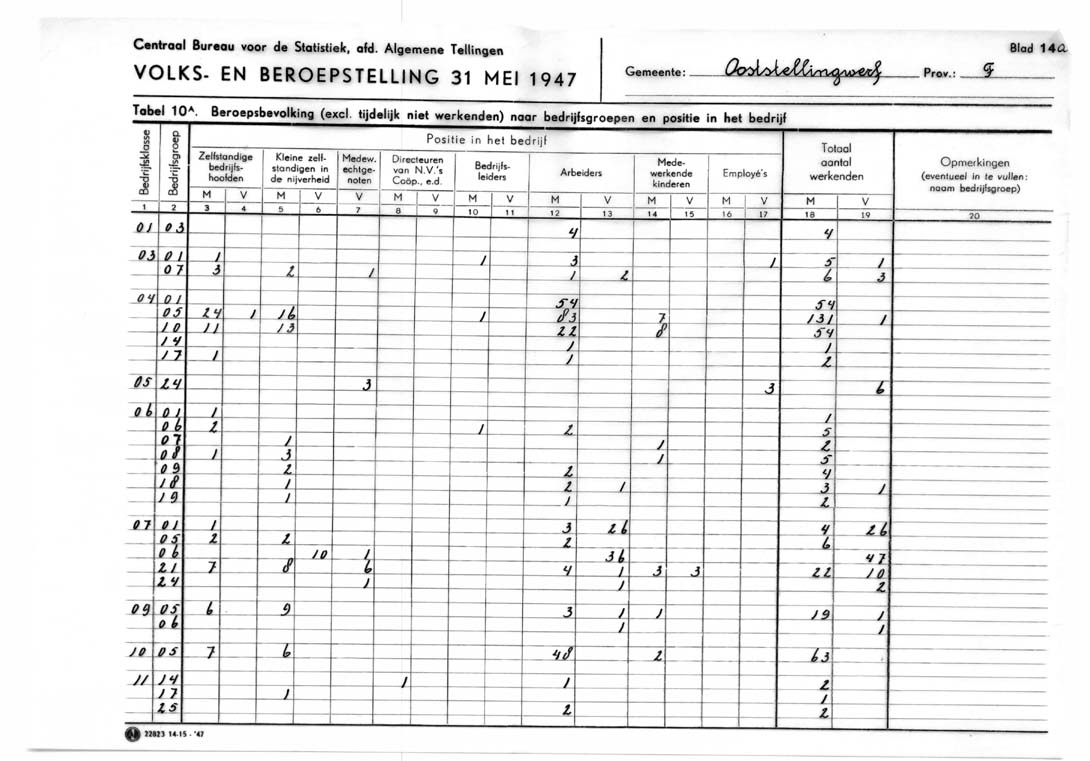 Centraal Bureau voor de Statistiek, afd. Algemene Tellingen
Blad 14a
VOLKS- EN BEROEPSTELLING 31 MEI 1947
Gemeente: Ooststellingwerf Prov.: F
Tabel 10A. Beroepsbevolking (excl. tijdelijk niet werkenden) naar bedrijfsgroepen en positie in het bedrijf
Bedrijfsklasse Bedrijfsgroep Positie in het bedrijf Totaal aantal werkenden Opmerkingen (eventueel in te vullen: naam bedrijfsgroep)
Zelfstandige bedrijfshoofden Kleine zelfstandigen in de nijverheid Medew. echtgenoten Directeuren van N.V.'s Coöp., e.d. Bedrijfsleiders Arbeiders Medewerkende kinderen Employé's
M V M V V M V M V M V M V M V M V
1 2 3 4 5 6 7 8 9 10 11 12 13 14 15 16 17 18 19 20
01 03 4 4
03 01 1 1 3 1 5 1
07 3 2 1 1 2 6 3
04 01 54 54
05 24 1 16 1 83 7 131 1
10 11 13 22 8 54
14 1 1
17 1 1 2
05 24 3 3 6
06 01 1 1
06 2 1 2 5
07 1 1 2
08 1 3 1 5
09 2 2 4
18 1 2 1 3 1
19 1 1 2
07 01 1 3 26 4 26
05 2 2 2 6
06 10 1 36 47
21 7 8 6 4 1 3 3 22 10
24 1 1 2
09 05 6 9 3 1 1 19 1
06 1 1
10 05 7 6 48 2 63
11 14 1 1 2
17 1 1
25 2 2
22823 14-15 - '47